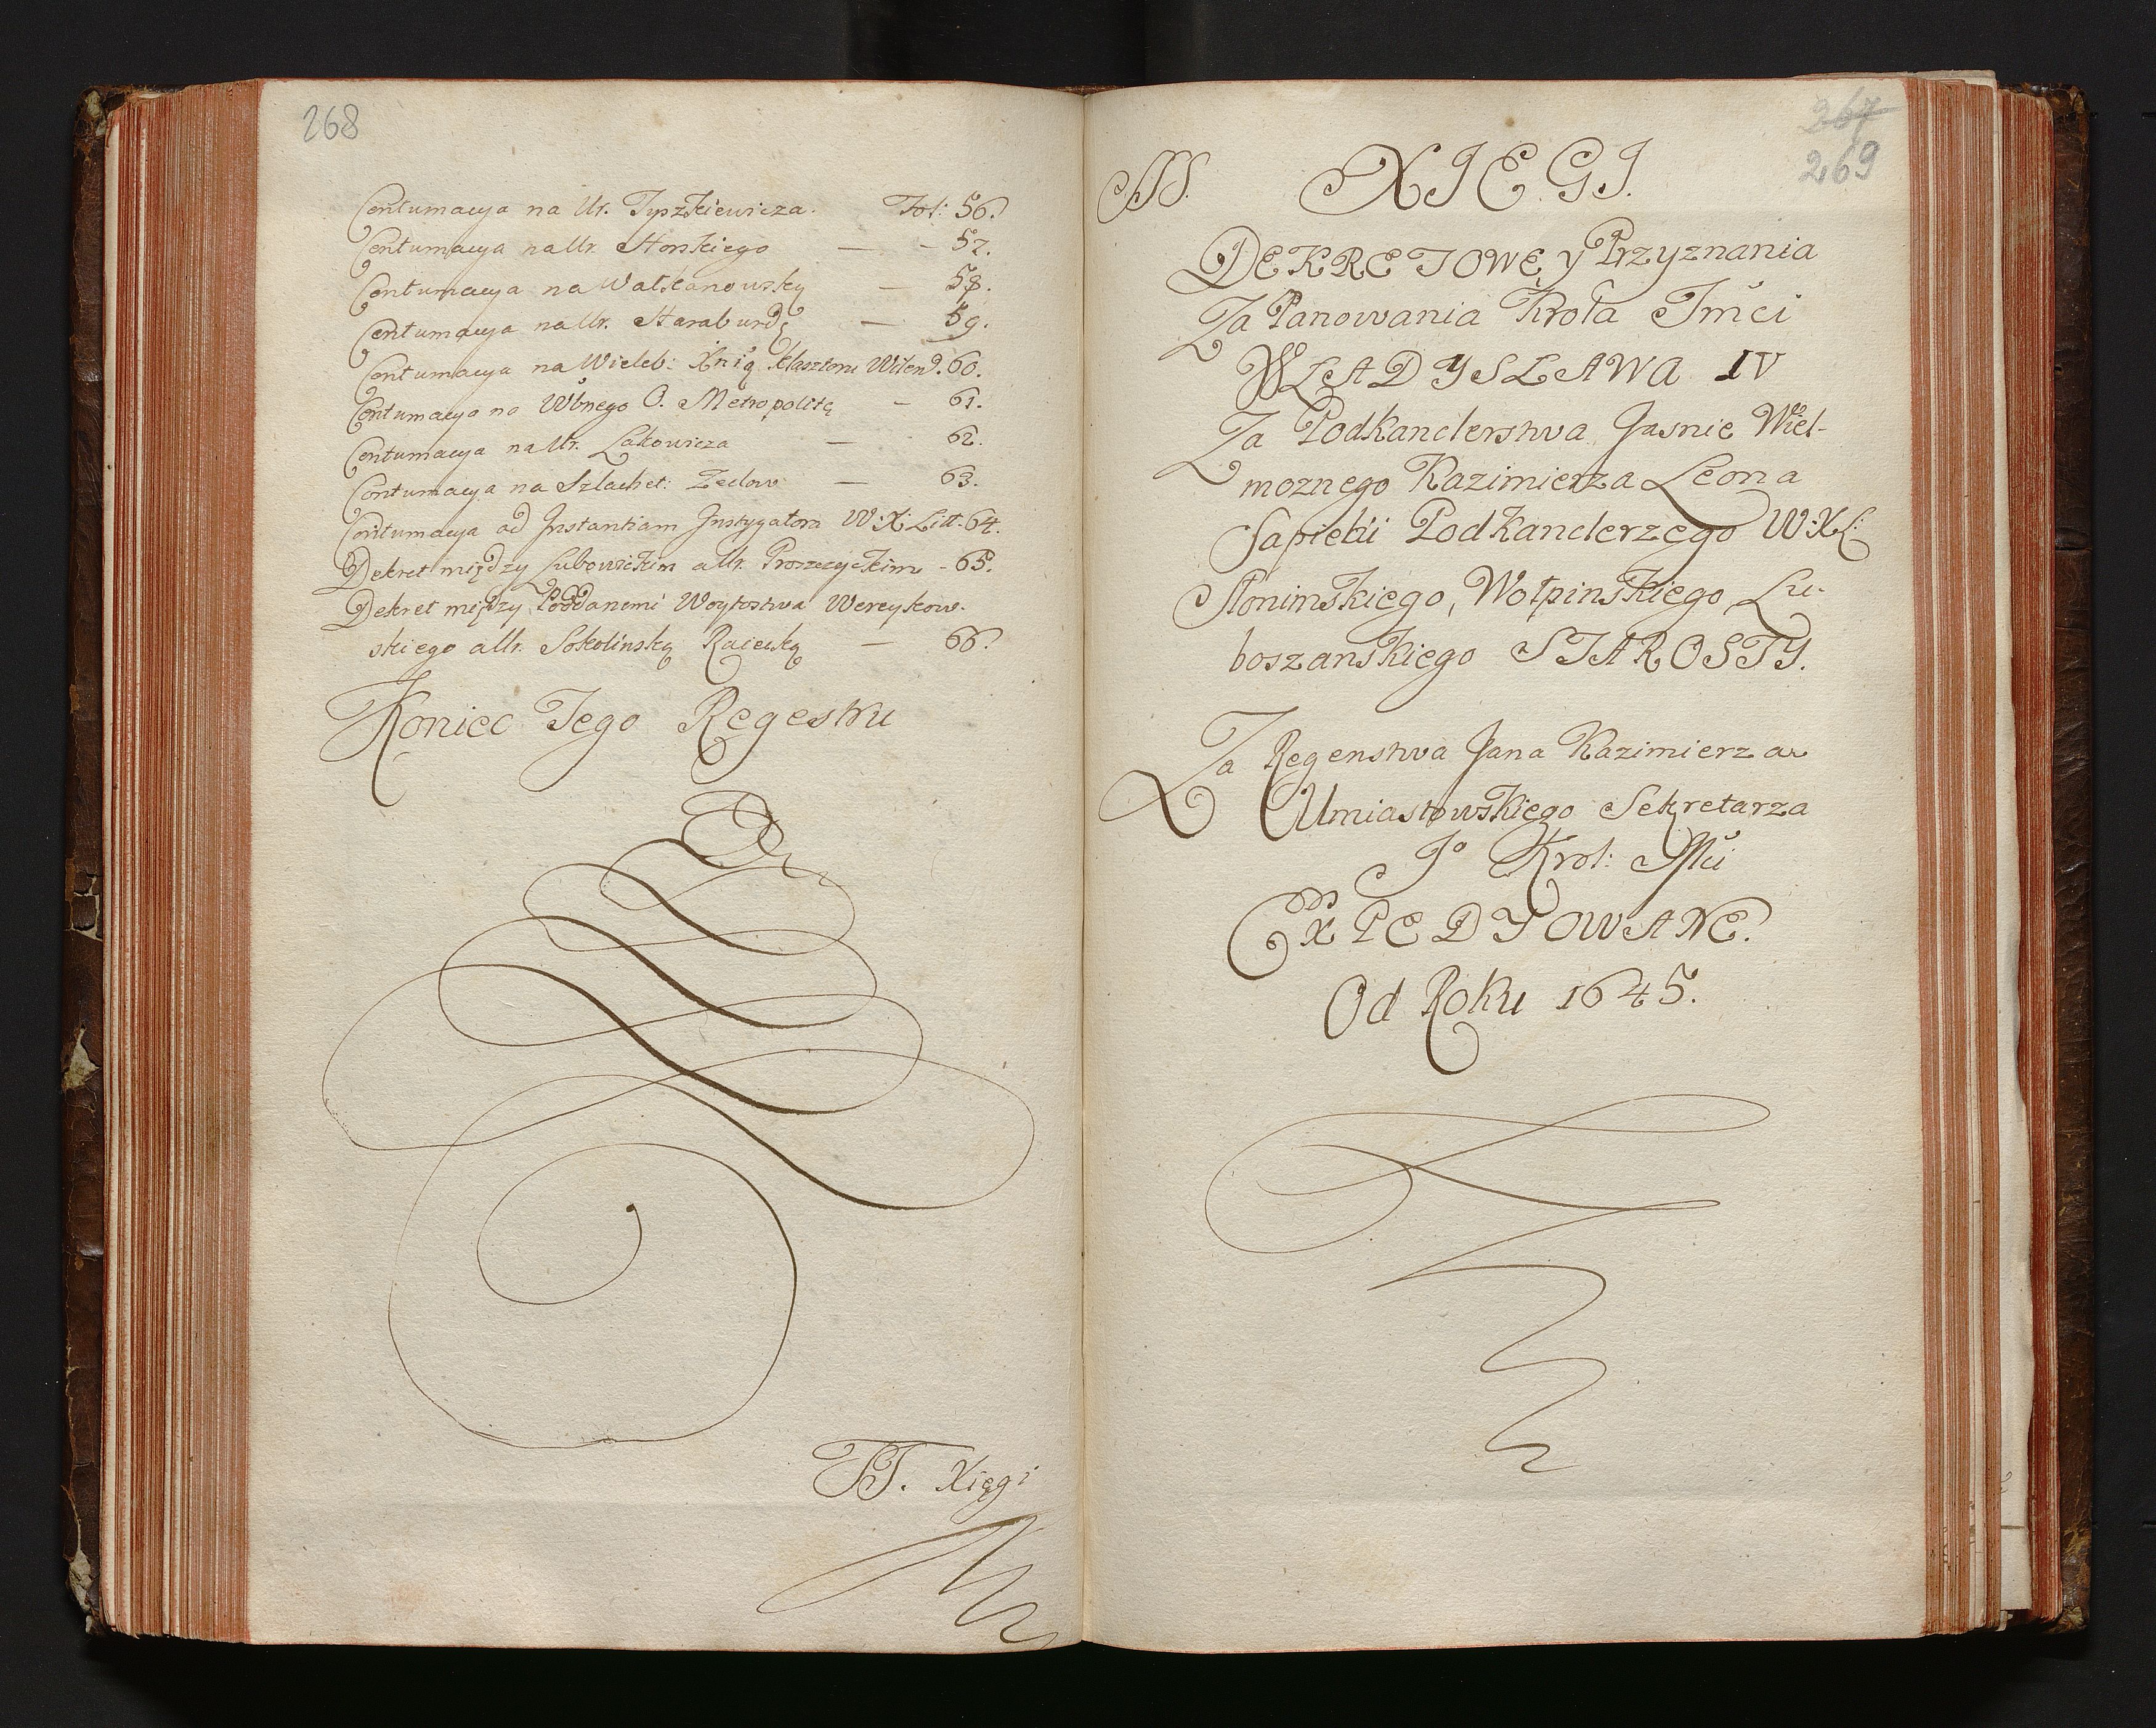 268
Contumacya na Ur. Tyszkiewicza. Fol: 56.
Contumacya na Ur. Horskiego — - 57.
Contumacya na Wołkanowską — 58.
Contumacya na Ur. Haraburdę — 59.
Contumacya na Wieleb: Xnią Klasztoru Wilen. 60.
Contumacya na Wbnego O. Metropolitę - 61.
Contumacya na Ur. Lakowicza — 62.
Contumacya na Szlachet: Zedow — 63.
Contumacya ad Instantiam Instygatora W: X: Litt. 64.
Dekret między Lubowickim a Ur. Proszczyckim - 65.
Dekret między Poddanemi Woytostwa Wereykow-
skiego a Ur. Sokolinską Raiecką — 66.
Koniec Tego Regestru
TT. Xięgi
267
269
SS. XIĘGI.
DEKRETOWE y Przyznania
Za Panowania Krola Jmći
WŁADYSŁAWA IV
Za Podkanclerstwa Jasnie Wiel-
moznego Kazimierza Leona
Sapiehi Podkanclerzego W: X L:
Słonimskiego, Wołpinskiego Lu-
boszanskiego STAROSTY.
Za Regenstwa Jana Kazimierza
Umiastowskiego Sekretarza
Jo Krol: Mći
ExPEDYOWANE.
Od Roku 1645.